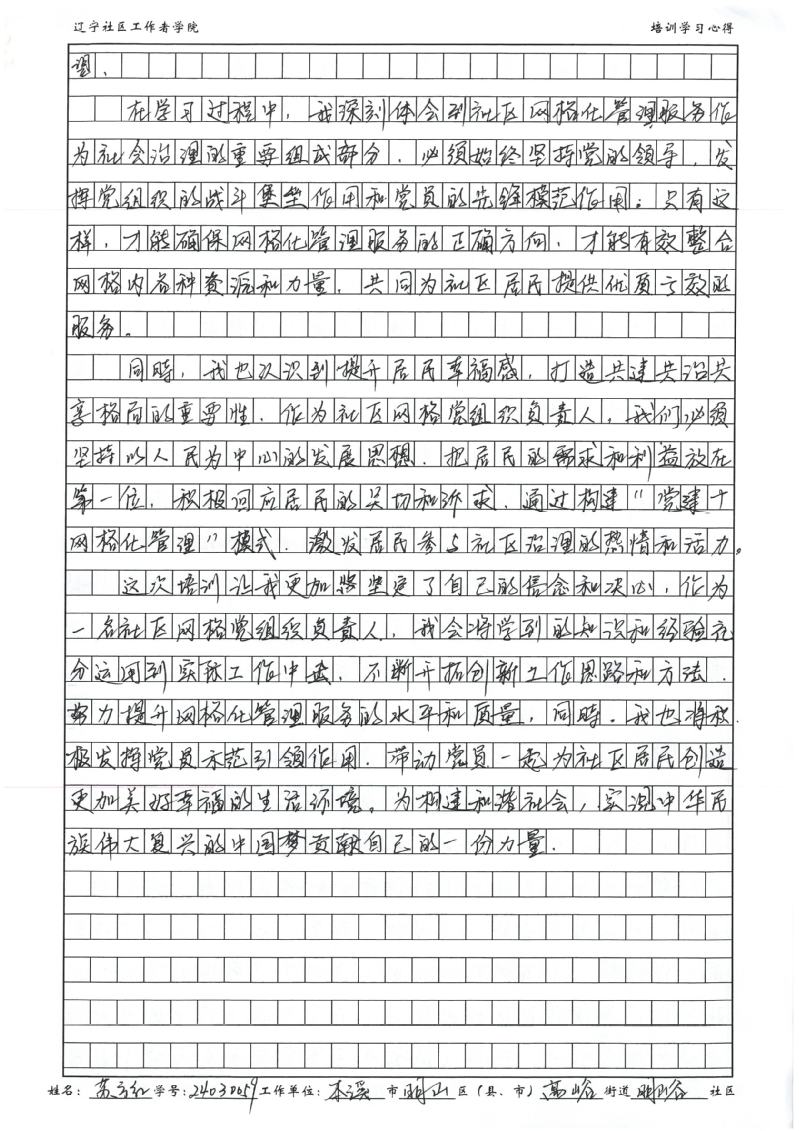 辽宁社区工作者学院 培训学习心得
理、
在学习过程中，我深刻体会到社区网格化管理服务作
为社会治理的重要组成部分，必须始终坚持党的领导，发
挥党组织的战斗堡垒作用和党员的先锋模范作用；只有这
样，才能确保网格化管理服务的正确方向，才能有效整合
网格内各种资源和力量，共同为社区居民提供优质亏效的
服务。
同时，我也认识到提升居民幸福感，打造共建共治共
享格局的重要性，作为社区网格党组织负责人，我们必须
坚持以人民为中心的发展思想，把居民的需求和利益放在
第一位，积极回应居民的关切和诉求，通过构建"党建十
网格化管理"模式，激发居民参与社区治理的热情和活力。
这次培训让我更加坚定了自己的信念和决心，作为
一名社区网格党组织负责人，我会将学到的知识和经验充
分运用到实际工作中去，不断开拓创新工作思路和方法，
努力提升网格化管理服务的水平和质量，同时，我也将积
极发挥党员示范引领作用，带动党员一起为社区居民创造
更加美好幸福的生活环境。为构建和谐社会，实现中华民
族伟大复兴的中国梦贡献自己的一份力量.
姓名: 学号:24030059 工作单位: 本溪 市 明山 区（县、市） 高峪 街道 明峪 社区